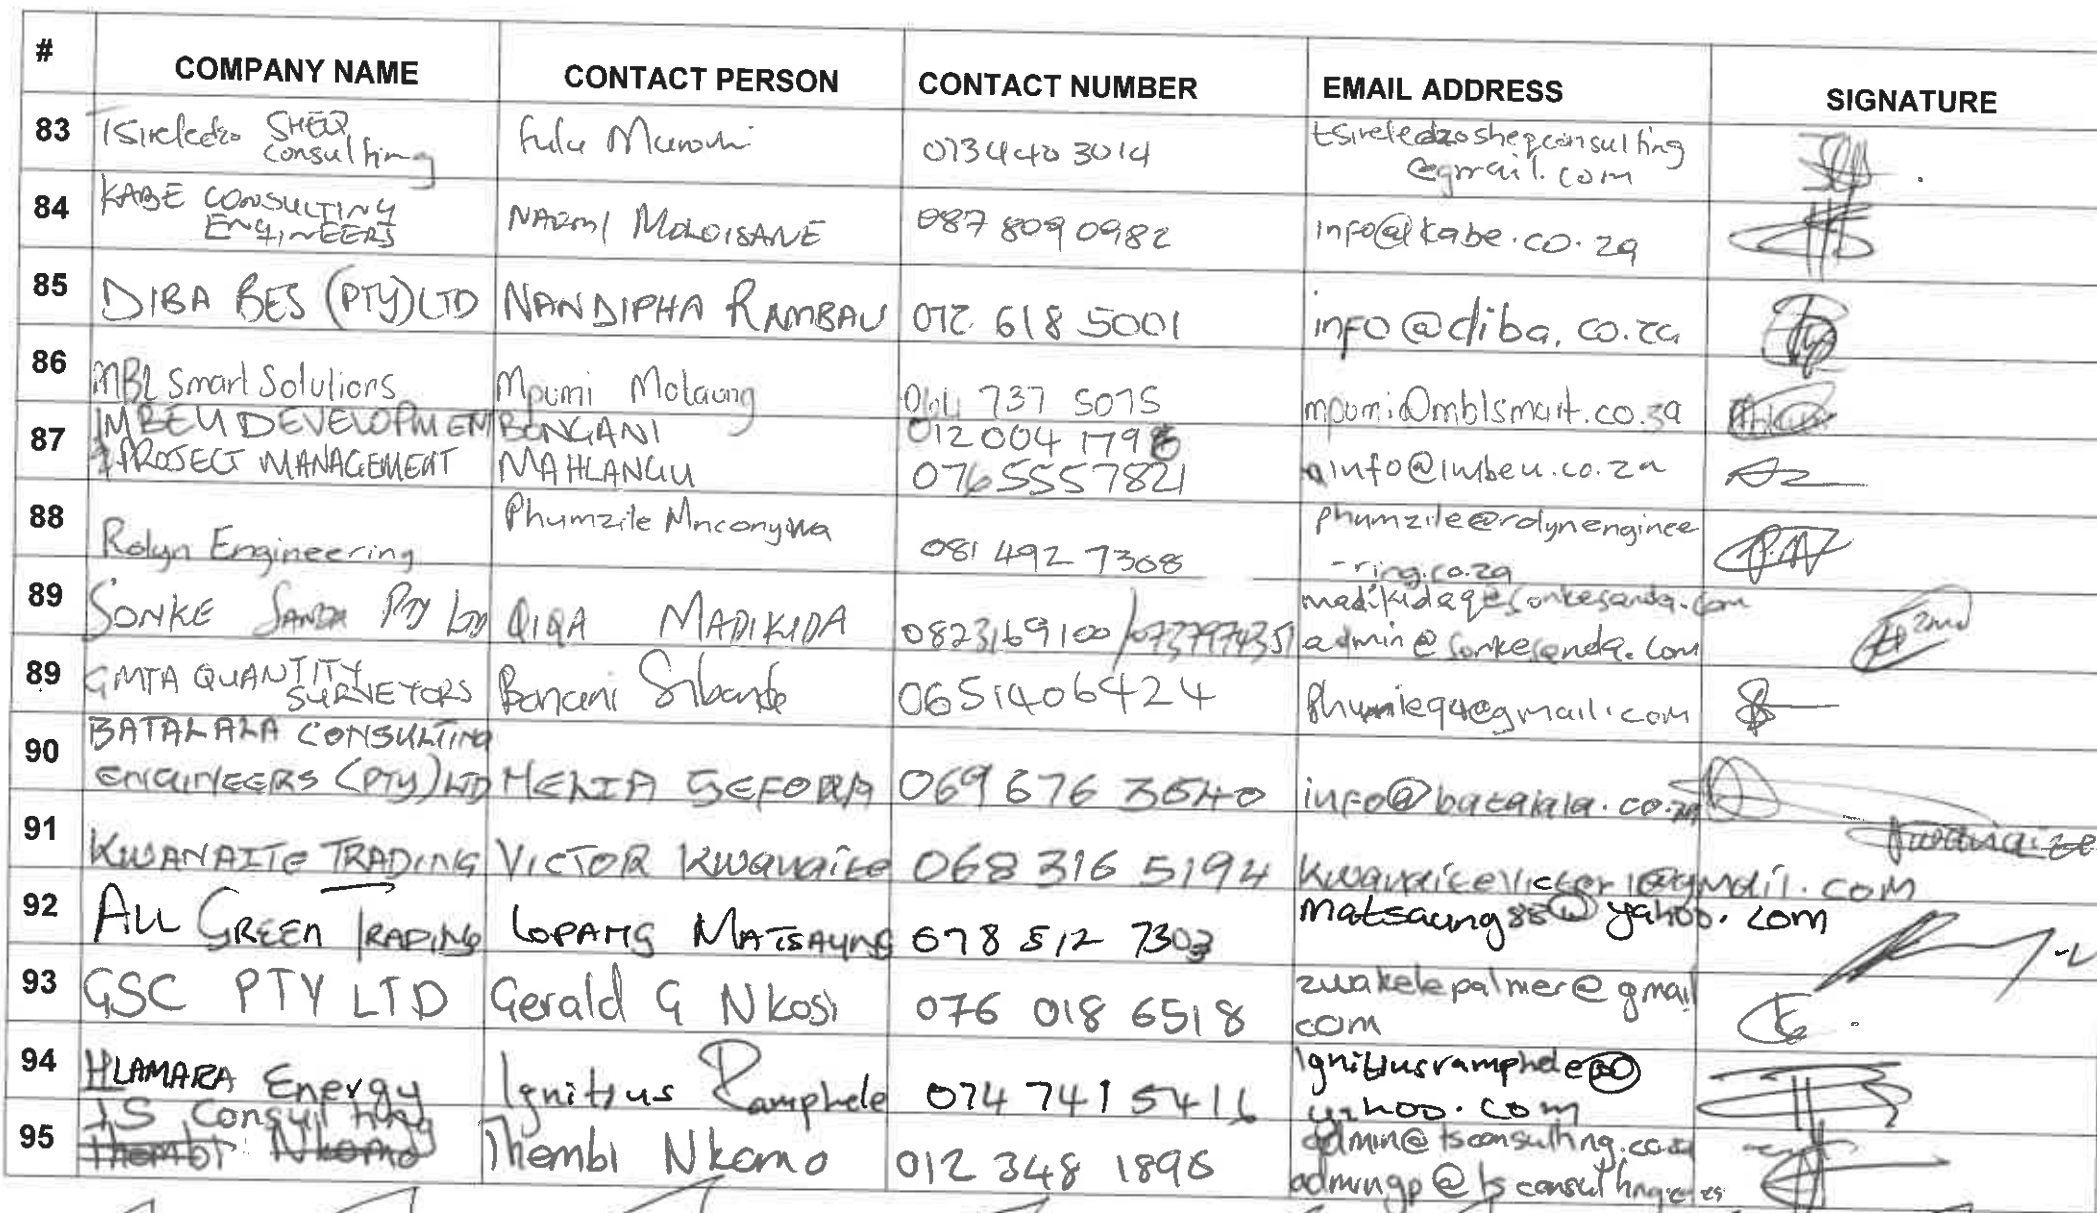 # COMPANY NAME CONTACT PERSON CONTACT NUMBER EMAIL ADDRESS SIGNATURE
83 Tsireledzo SHEQ consulting Fulu Muravhi 073 440 3014 tsireledzosheqconsulting @gmail.com
84 KABE CONSULTING ENGINEERS MOLOISANE 087 809 0982 info@kabe.co.za
85 DIBA BES (PTY) LTD NANDIPHA RAMBAU 072 618 5001 info@diba.co.za
86 MBL Smart Solutions Mpumi Molaung 737 5075 mpumi@mblsmart.co.za
87 IMBEU DEVELOPMENT & PROJECT MANAGEMENT BONGANI MAHLANGU 012 004 1798 0765557821 info@imbeu.co.za
88 Rolyn Engineering Phumzile 081 492 7308 phumzile@rolynenginee -ring.co.za
89 SONKE SANDA Pty Ltd QIQA MADIKIDA 0823169100/0737974351 madikidaq@sonkesanda.com
admin@sonkesanda.com
89 GMTA QUANTITY SURVEYORS Bonani Sibanda 0651406424 @gmail.com
90 BATALALA CONSULTING ENGINEERS (PTY) LTD 069 676 3540 info@batalala.co.za
91 KWANAITE TRADING VICTOR Kwanaite 068 316 5194 kwanaitevictor1@gmail.com
92 ALL GREEN TRADING LOPANG MATSAUNG 078 512 7303 matsaung88@yahoo.com
93 GSC PTY LTD Gerald G Nkosi 076 018 6518 zwakelepalmer@gmail com
94 HLAMARA Energy Ignitius Ramphele 074 741 5416 Ignitiusramphele@ yahoo.com
95 TS Consulting Thembi Nkomo Thembi Nkomo 012 348 1896 admin@tsconsulting.co.za